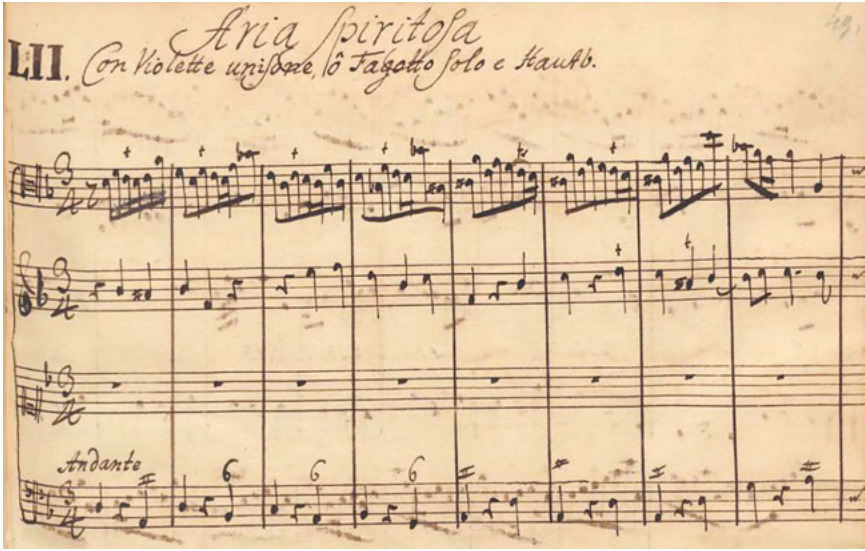 Aria Spiritosa
49.
LII. Con Violette unisone, ô Fagotto Solo e Hautb.
3 4
3 4
3 4
Andante
6 6 6
3 4